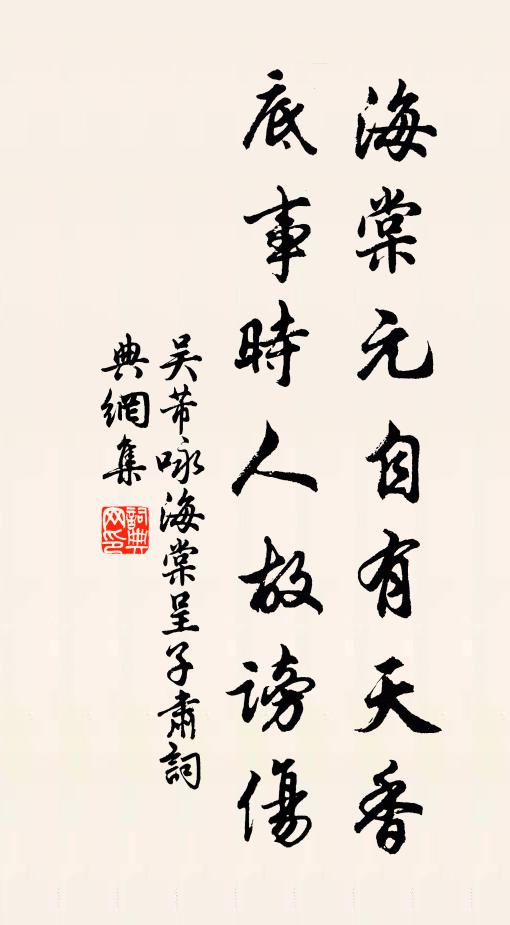 海棠元自有天香
底事時人故謗傷
吴芾咏海棠呈子肅詞
典網集
詞典網印